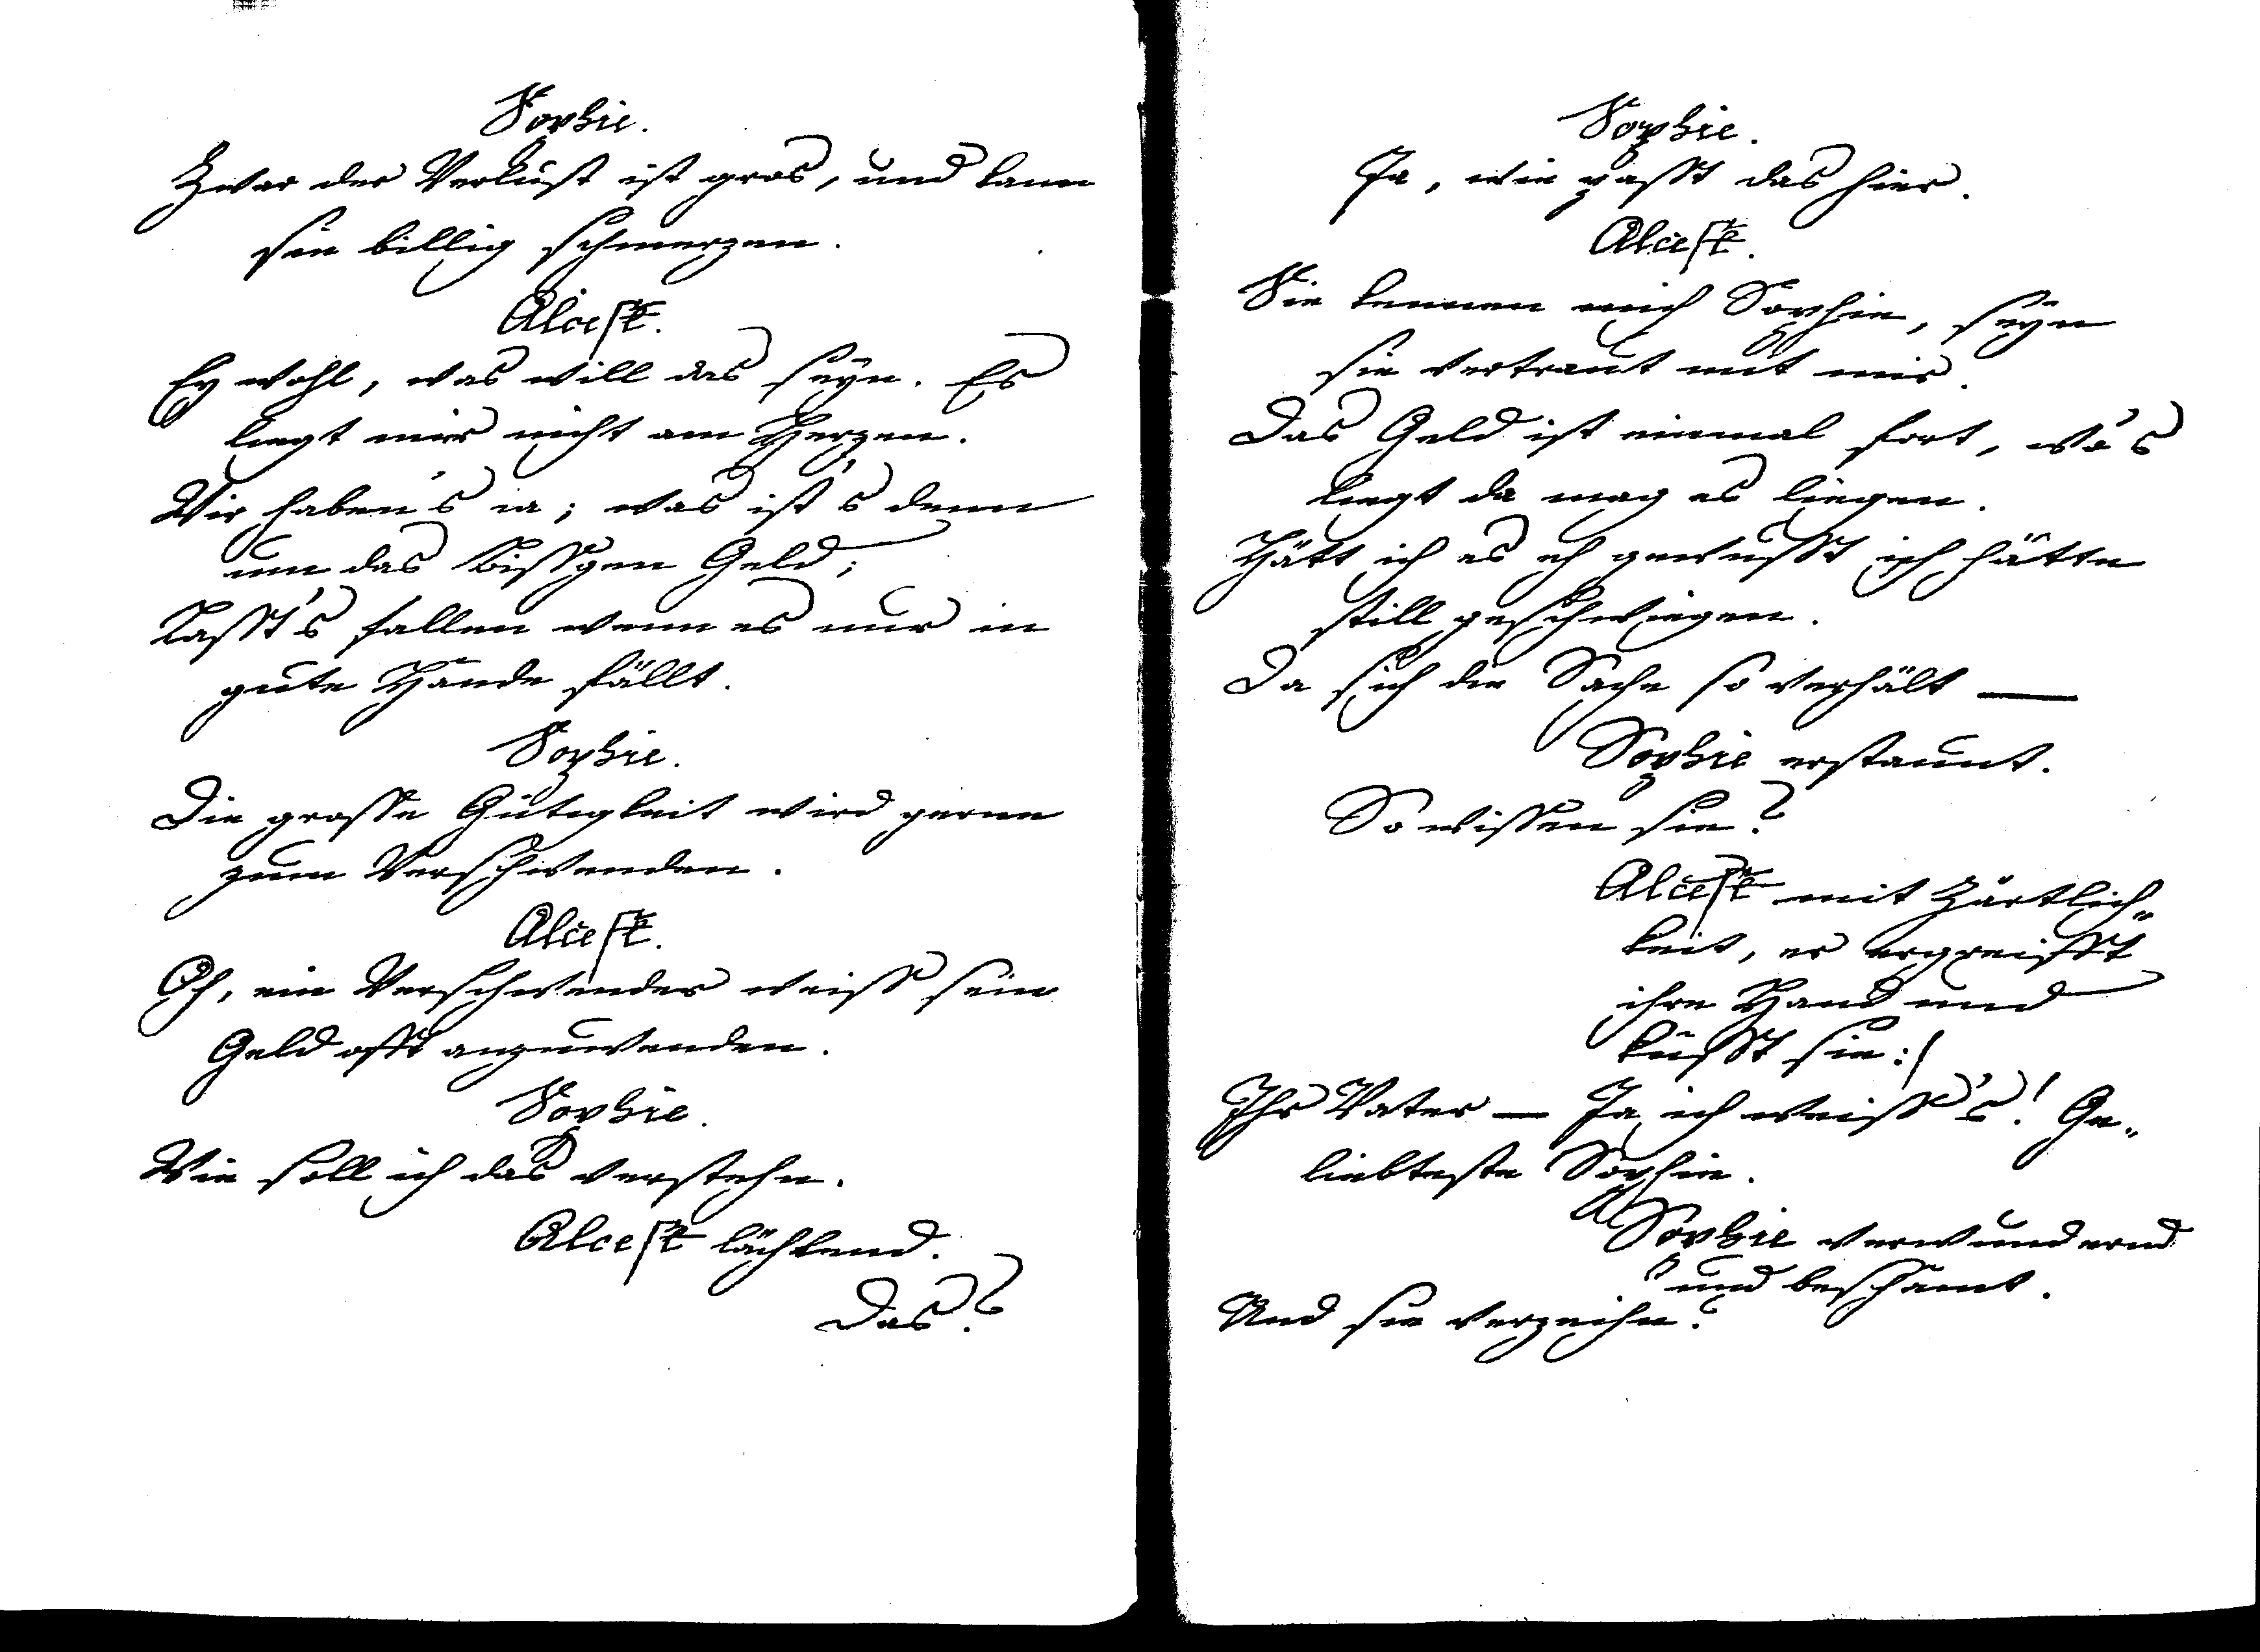 Sophie.
Zwar der Verlust ist gros, und kann
sie billig schmerzen.
Alcest.
Ey wohl, was will das seyn. Es
liegt mir nicht am Herzen.
Wir haben's ia; was ist's denn
um das Bissgen Geld;
Lasst's fallen wenn es nur in
gute Hände fällt.
Sophie.
Die grosse Gütigkeit wird gerne
zum Verschwenden.
Alcest.
Oh, ein Verschwender weiss sein
Geld offt anzuwenden.
Sophie.
Wie soll ich das verstehn.
Alcest lächlend.
Das?
Sophie.
Ja, wie passt das hier.
Alcest.
Sie kennen mich Sophie, seyn
sie vertraut mit mir.
Das Geld ist einmal fort, wo's
liegt da mag es liegen.
Hätt ich es eh gewusst ich hätte
still geschwiegen.
Da sich die Sache so verhält —
Sophie erstaunt.
So wissen sie?
Alcest mit Zärtlich„
keit, er ergreifft
ihre Hand und
küsst sie :/
Ihr Vater — Ja ich weiss's! Ge„
liebteste Sophie.
Sophie verwundernd
und beschämt.
Und sie verzeihn?